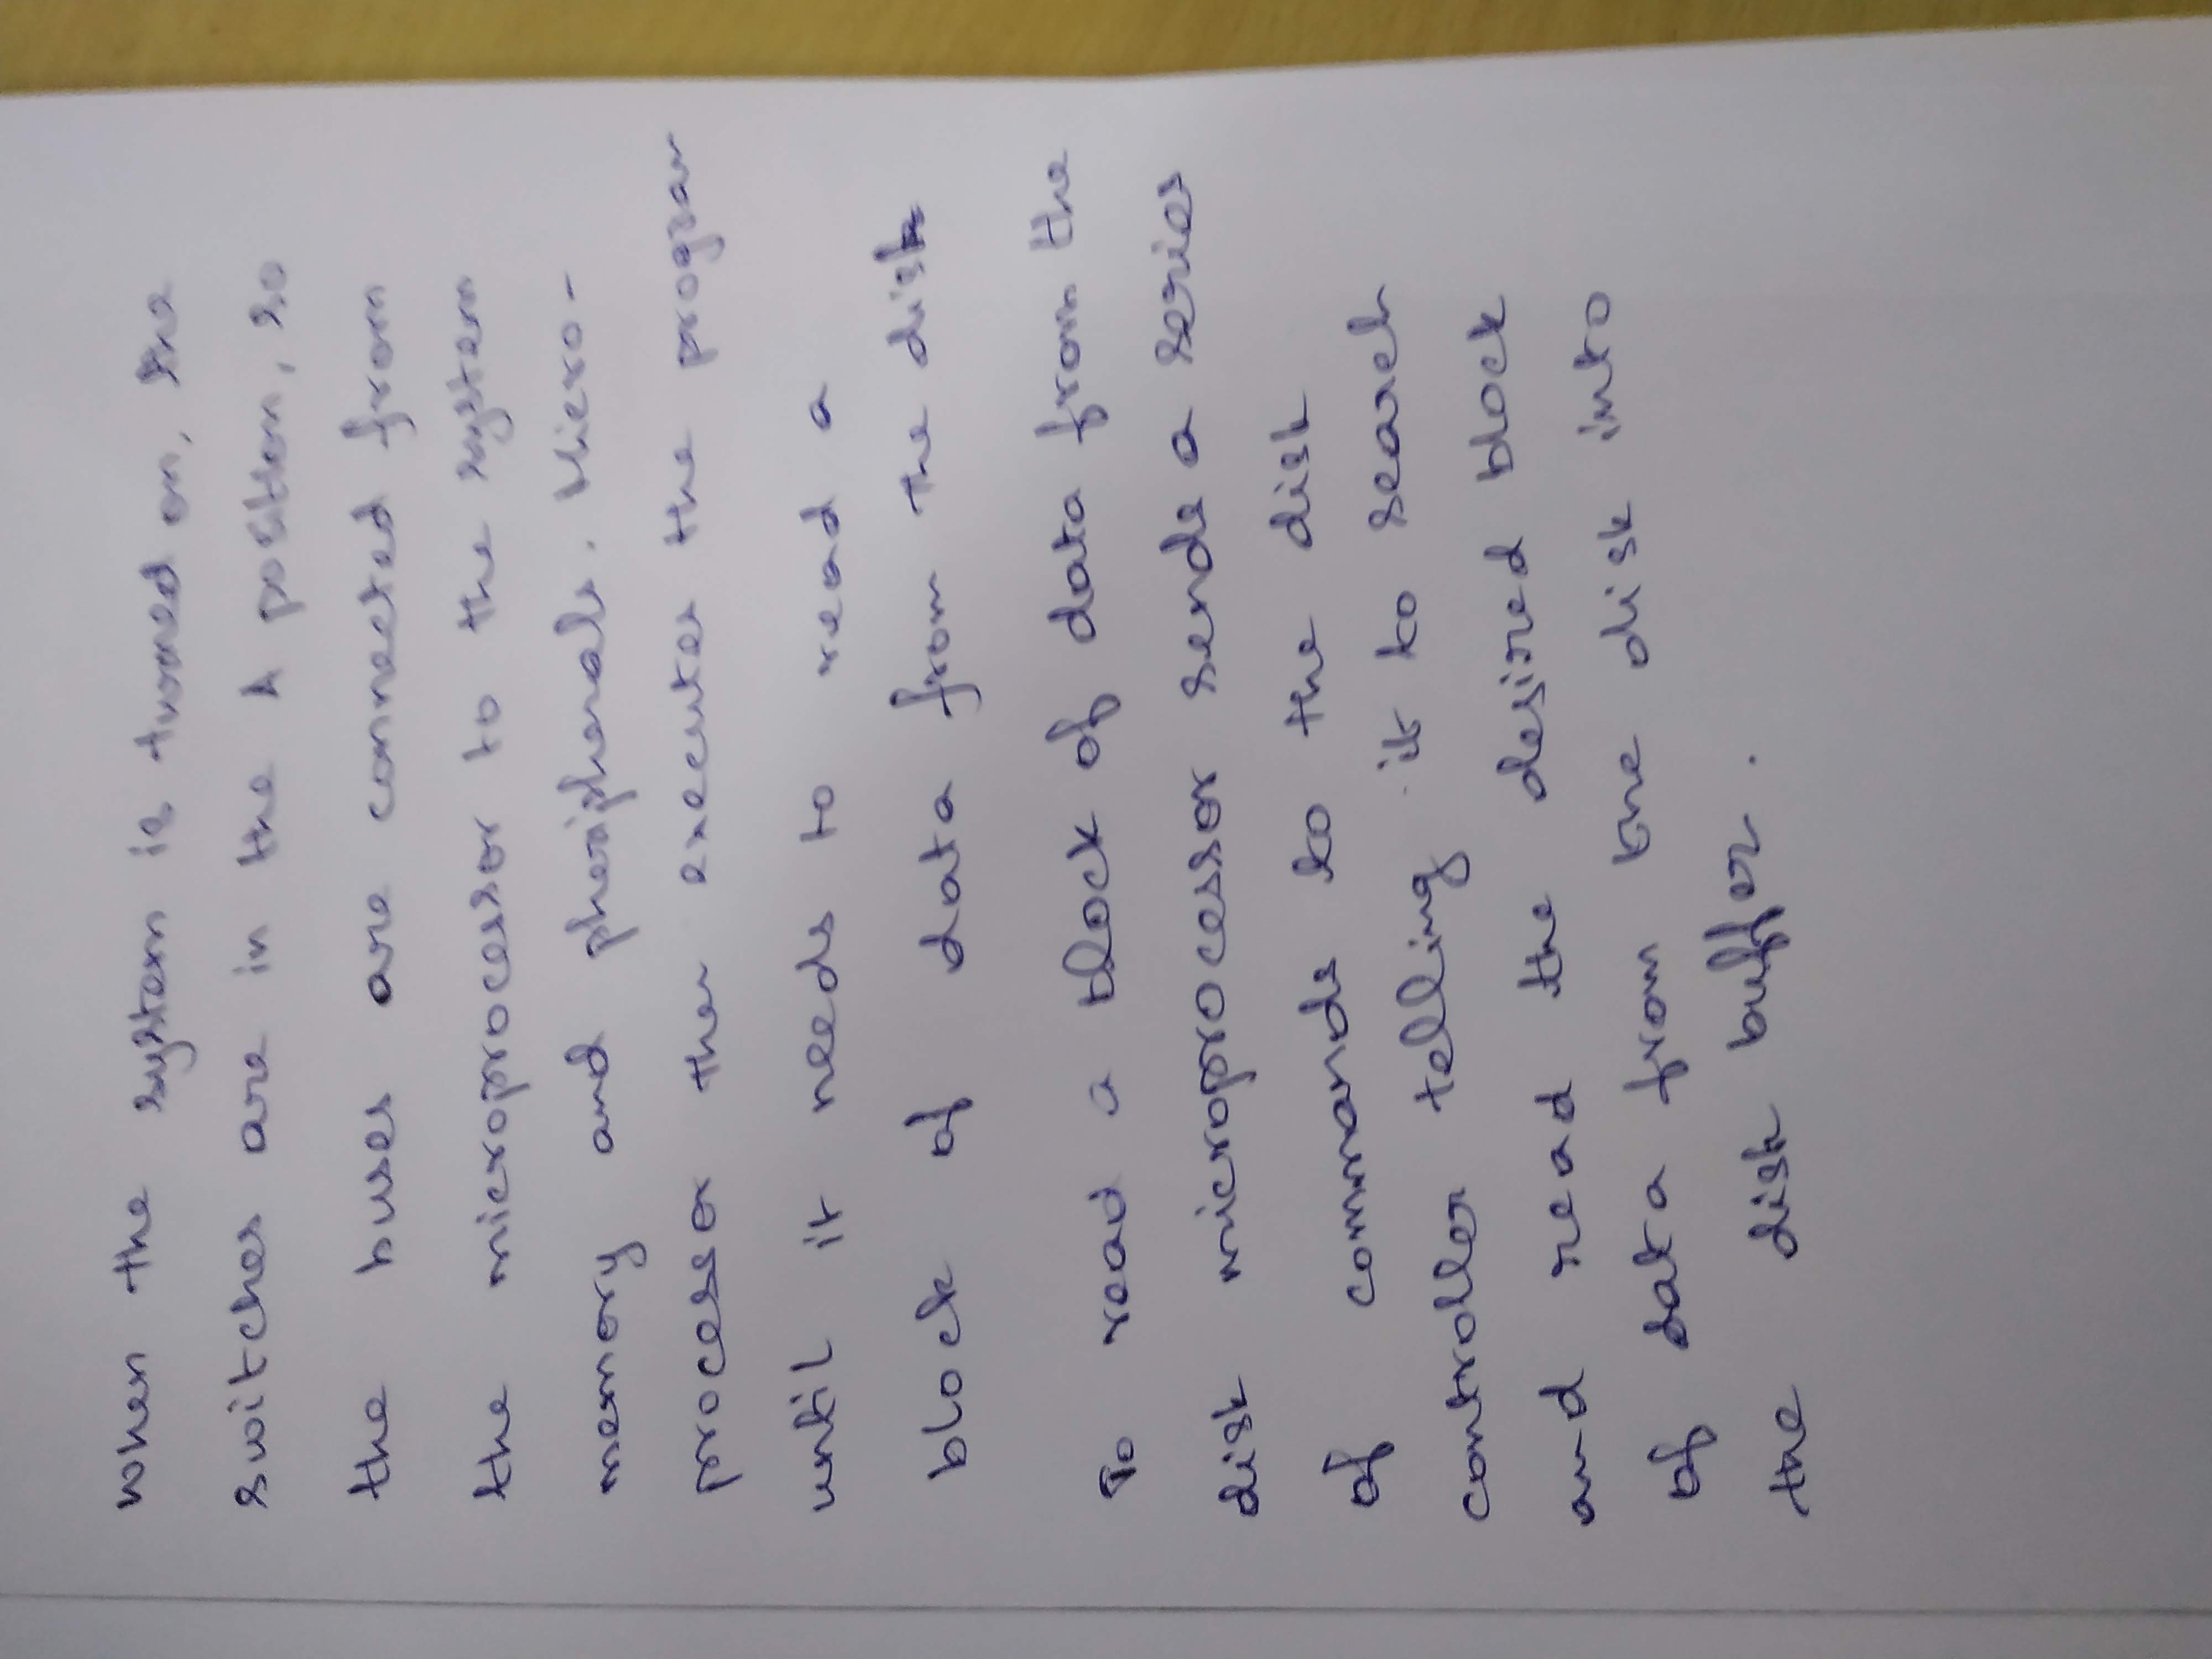 when the system is turned on, the
switches are in the A position, so
the buses are connected from
the microprocessor to the system
memory and pheripherals. Micro-
processor then executes the program
until it needs to read a
block of data from the disk
To read a block of data from the
disk microprocessor sends a series
of commands to the disk
controller telling it to search
and read the desired block
of data from the disk into
the disk buffer.